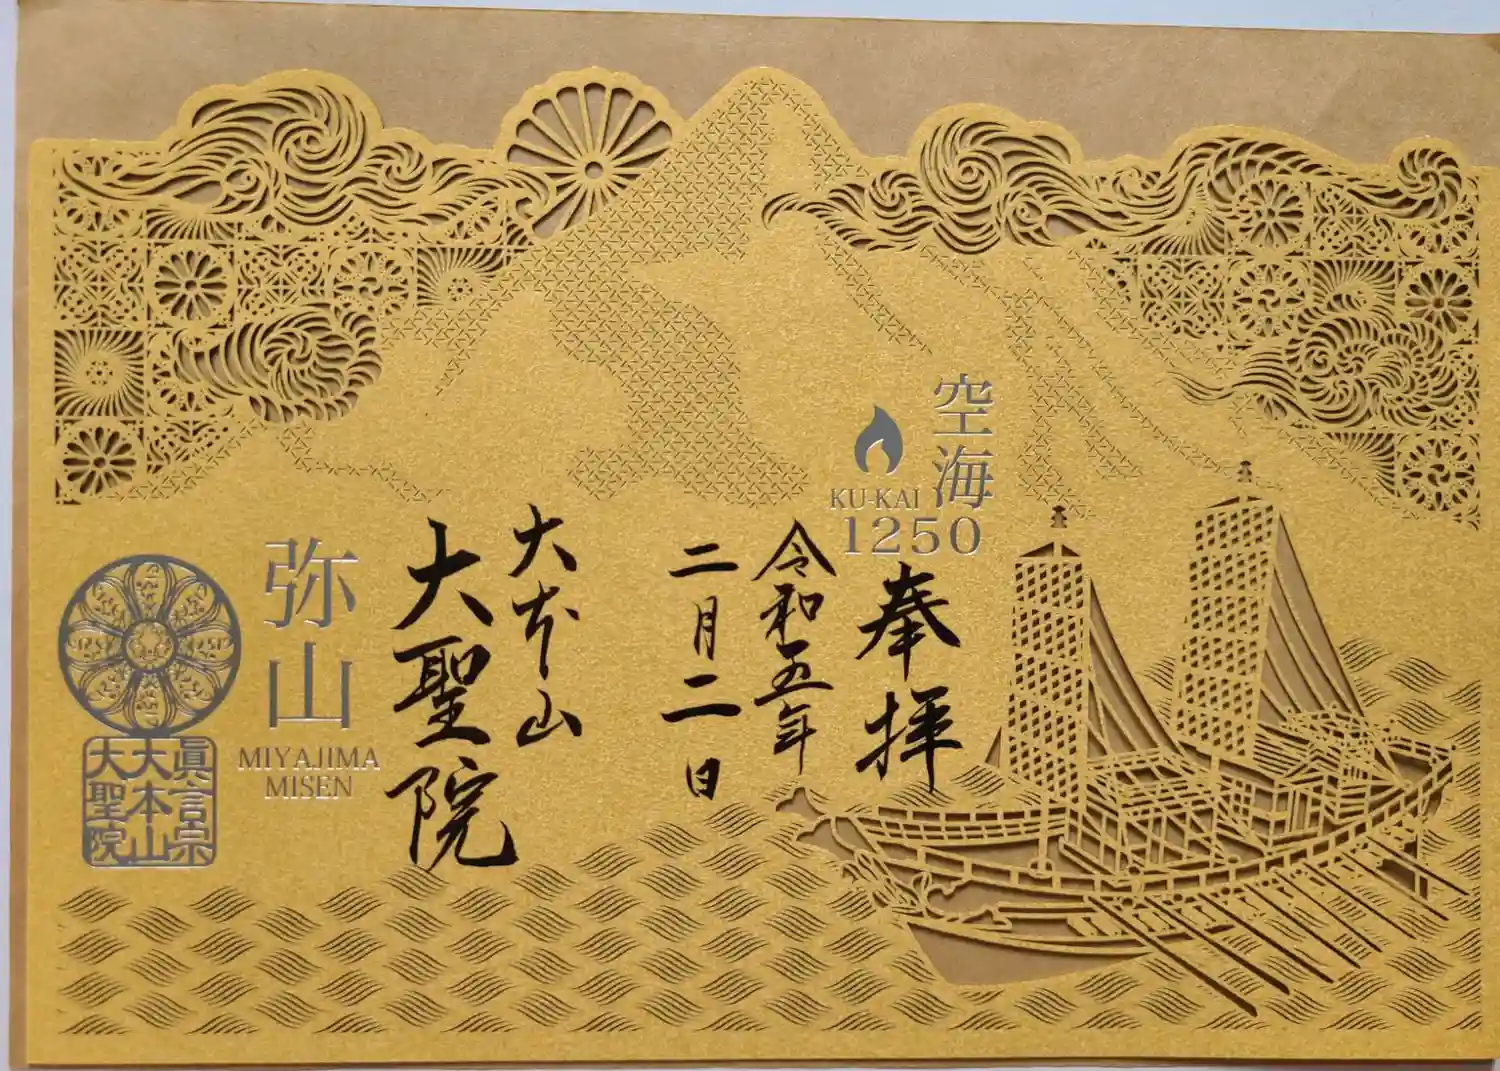 空海
KU-KAI
1250
奉拝
令和五年
二月二日
大本山
大聖院
弥山
MIYAJIMA
MISEN
眞言宗
大本山
大聖院